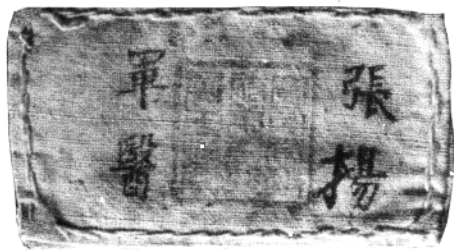 張揚
軍醫